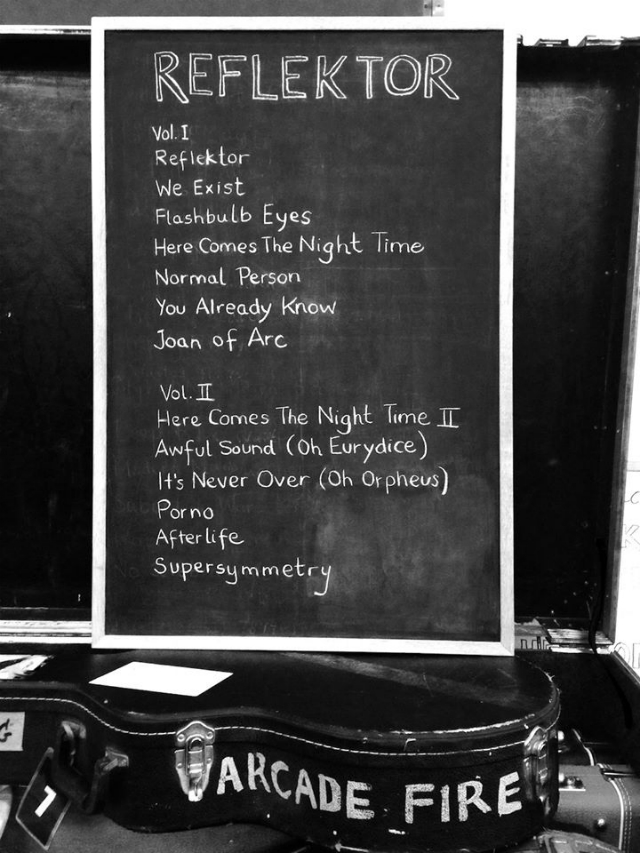 REFLEKTOR
Vol. I
Reflektor
We Exist
Flashbulb Eyes
Here Comes The Night Time
Normal Person
You Already Know
Joan of Arc
Vol. II
Here Comes The Night Time II
Awful Sound (Oh Eurydice)
It's Never Over (Oh Orpheus)
Porno
Afterlife
Supersymmetry
ARCADE FIRE
G
7